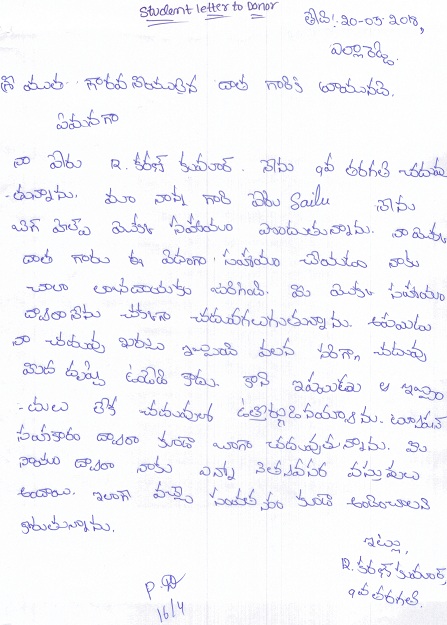 Student letter to Donor
తేది: 20-03-2018,
ఎల్లారెడ్డి.
శ్రీ యుత గౌరవనీయులైన దాత గారికి వ్రాయునది.
ఏమనగా
నా పేరు R. కిరణ్ కుమార్. నేను 9వ తరగతి చదువు
-తున్నాను. మా నాన్న గారి పేరు Sailu నేను
బిగ్ హెల్ప్ యొక్క సహాయం పొందుతున్నాను. నా యొక్క
దాత గారు ఈ విదంగా సహాయం చేయడం నాకు
చాలా లాభదాయకం జరిగింది. మీ యొక్క సహాయం
ద్వారా నేను చక్కగా చదువగలుగుతున్నాను. అప్పుడు
నా చదువు ఖర్చులు ఇబ్బంది వలన సరిగ్గా చదువు
మీద దృష్టి ఉండేది కాదు. కాని ఇప్పుడు ఆ ఇబ్బం
-దులు లేక చదువులో ఉత్తీర్ణుడినయ్యాను. ట్యూషన్
సహకారం ద్వారా కూడా బాగా చదువుతున్నాను. మీ
సాయం ద్వారా నాకు ఎన్నో నిత్యవసర వస్తువులు
అందాయి. ఇలాగే వచ్చే సంవత్సరం కూడా అందించాలని
కోరుతున్నాను.
ఇట్లు,
R. కిరణ్ కుమార్,
9వ తరగతి.
16/4